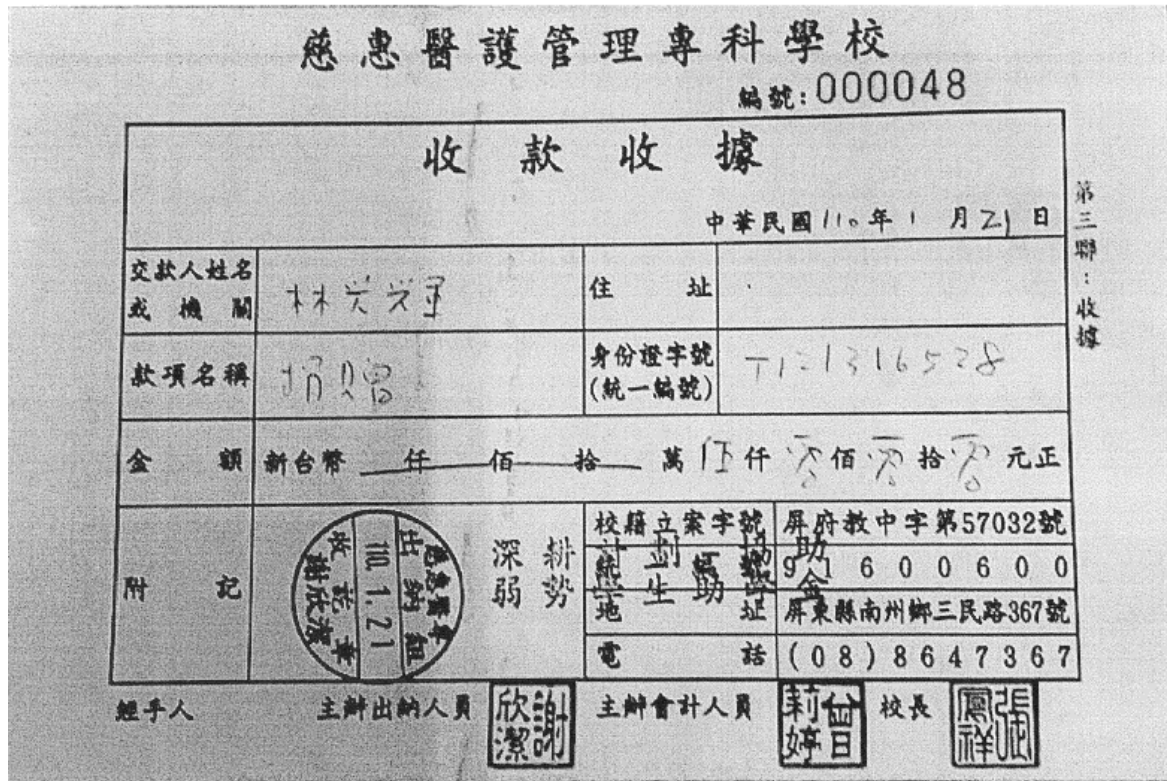 慈惠醫護管理專科學校
編號:000048
收款收據
中華民國110年1月21日
第三聯:收據
交款人姓名或機關
住址
款項名稱 捐贈
身份證字號(統一編號) T121316528
金額 新台幣 仟 佰 拾 萬 伍仟 零佰 零拾 零元正
附記
慈惠醫專
出納組
110.1.21
收訖章
謝欣潔
深耕計劃-協助
弱勢學生助學金
校籍立案字號 屏府教中字第57032號
統一編號 91600600
地址 屏東縣南州鄉三民路367號
電話 (08)8647367
經手人 主辦出納人員 謝欣潔 主辦會計人員 曾莉婷 校長 張